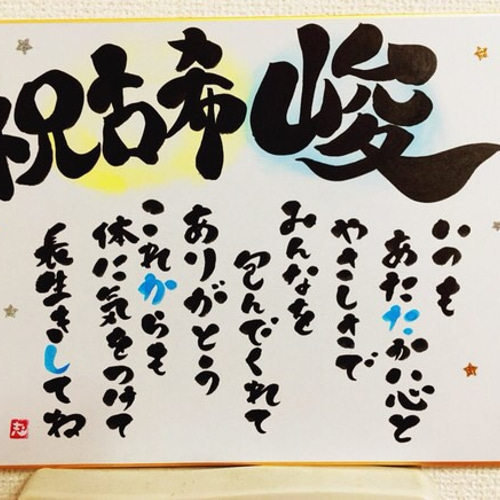 祝古希 峻
いつも
あたたかい心と
やさしさで
みんなを
包んでくれて
ありがとう
これからも
体に気をつけて
長生きしてね